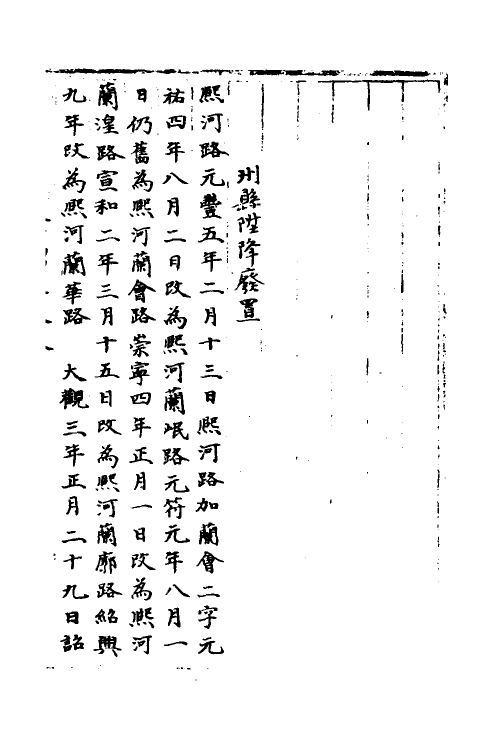 州縣陞降廢置
熈河路元豐五年二月十三日熈河路加蘭會二字元
祐四年八月二日改為熈河蘭岷路元符元年八月一
日仍舊為熈河蘭會路崇寧四年正月一日改為熈河
蘭湟路宣和二年三月十五日改為熈河蘭廓路紹興
九年改為熈河蘭鞏路　大觀三年正月二十九日詔